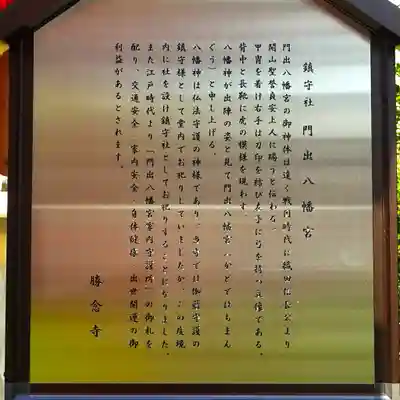 鎮守社 門出八幡宮
門出八幡宮の御神体は遠く戦国時代に織田信長公より
開山聖誉貞安上人に賜うと伝わる。
甲冑を着け右手は刀印を結び左手に弓を持つ立像である。
背中と長靴に虎の模様を現わす。
八幡神が出陣の姿と見て門出八幡宮(かどではちまん
ぐう)と申し上げる。
八幡神は仏法守護の神様であり、当寺では伽藍守護の
鎮守様として堂内でお祀りしていましたが、この度境
内に社を設け鎮守社としてお祀りすることになりました。
また江戸時代より「門出八幡宮家内守護所」の御札を
配り、交通安全 家内安全 身体健康 出世開運の御
利益があるとされます。
勝念寺